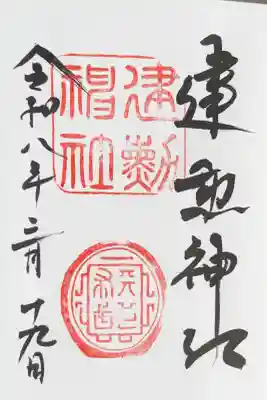 建勲神社
建勳
神社
令和八年三月十九日